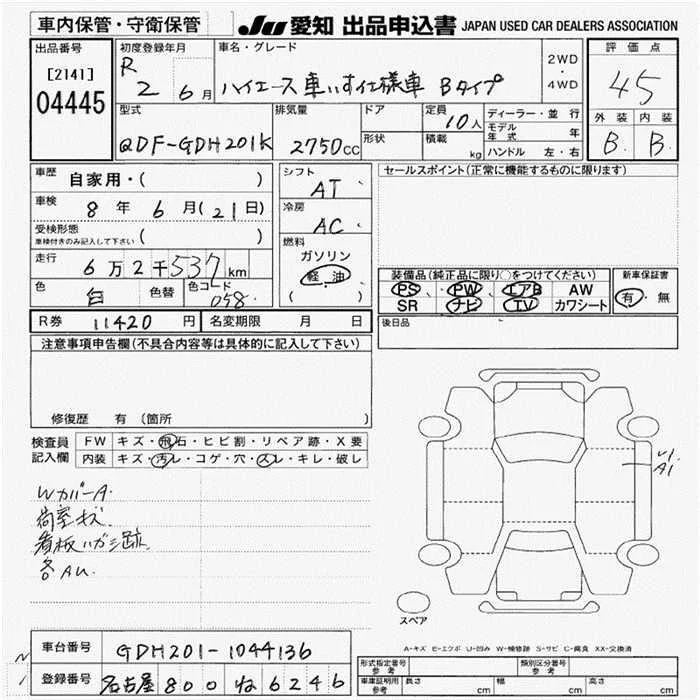 車内保管・守衛保管
JU 愛知 出品申込書 JAPAN USED CAR DEALERS ASSOCIATION
出品番号
[2141]
04445
初度登録年月
R 2 6月
車名・グレード
ハイエース 車いす仕様車 Bタイプ
2WD
・
4WD
評価点
45
外装 内装
B. B.
型式
QDF-GDH201K
排気量
2750cc
ドア
形状
定員
10人
積載
kg
ディーラー・並行
モデル年式 年
ハンドル 左・右
車歴
自家用・( )
車検
8年 6月(21日)
受検形態
車検付きのみ記入して下さい ( )
走行
6万2千537km
色
白
色替
色コード
058
シフト
AT
冷房
AC
燃料
ガソリン
軽油
( )
セールスポイント(正常に機能するものに限ります)
装備品(純正品に限り○をつけてください)
PS PW エアB AW
SR ナビ TV カワシート
新車保証書
有・無
R券 11420円
名変期限 月 日
後日品
注意事項申告欄(不具合内容等は具体的に記入して下さい)
修復歴 有 (箇所 )
検査員記入欄
FW キズ・飛石・ヒビ割・リペア跡・X要
内装 キズ・汚レ・コゲ・穴・スレ・キレ・破レ
WカバーA.
荷室キズ
看板ハガシ跡
各AU.
A1
スペア
A-キズ E-エクボ U-凹み W-補修跡 S-サビ C-腐食 XX-交換済
車台番号 GDH201-1044136
登録番号 名古屋 800 ね 6246
形式指定番号 参考
類別区分番号 参考
車庫証明用 参考
長さ cm 幅 cm 高さ cm